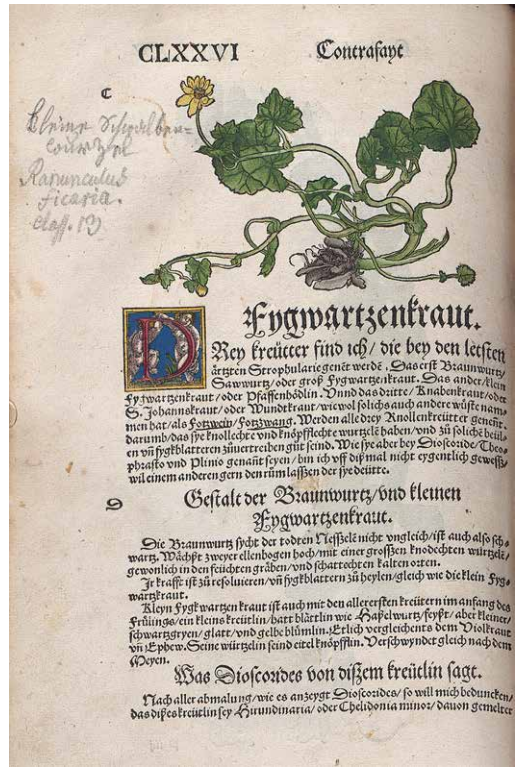 CLXXVI Contrafayt
C
Kleine Schwalben=
wurzel
Ranunculus
ficaria.
class. 13
Fygwartzenkraut.
DRey kreütter find ich / die bey den letsten
ärtzten Strophularie genēt werdē. Das erst Braunwurtz /
Sawwurtz / oder groß Fygwartzenkraut. Das ander / klein
Fygwartzenkraut / oder Pfaffenhödlin. Vnnd das dritte / Knabenkraut / oder
S. Johannskraut / oder Wundtkraut / wiewol solichs auch andere wüste nam=
men hat / als Fotzwein / Fotzwang. Werden alle drey Knollenkreütter genent.
darumb / das sye knollechte vnd knöpfflechte wurtzelē haben / vnd zů solichē beül=
en vñ fygkblatteren zůuertreiben gůt seind. Wie sye aber bey Dioscoride / Theo=
phrasto vnd Plinio genant seyen / bin ich vff diß mal nicht eygentlich gewesß /
wil einem anderen gern den rům lasßen der sye deütte.
D Gestalt der Braunwurtz / vnd kleinen
Fygwartzenkraut.
Die Braunwurtz sycht der todten Nesszelē nicht vngleich / ist auch also sch=
wartz. Wächßt zweyer ellenbogen hoch / mit einer grosszen knodechten würtzelē /
gewonlich in den feüchten gräben / vnd schattechten kalten orten.
Ir krafft ist zů resoluieren / vñ fygkblattern zů heylen / gleich wie die klein Fyg=
wartzkraut.
Kleyn Fygkwartzen kraut ist auch mit den allerersten kreütern im anfang des
Früings / ein kleins kreütlin / hatt blättlin wie Haßelwurtz / feyßt / aber kleiner /
schwartzgryen / glatt / vnd gelbe blümlin. Etlich vergleichents dem Violkraut
vñ Ephew. Seine würtzelin seind eitel knöpfflin. Verschwyndet gleich nach dem
Meyen.
Was Dioscordes von dißem kreütlin sagt.
Nach aller abmalung / wie es anzeygt Dioscorides / so will mich beduncken /
das dißes kreütlin sey Hirundinaria / oder Chelidonia minor / dauon gemelter